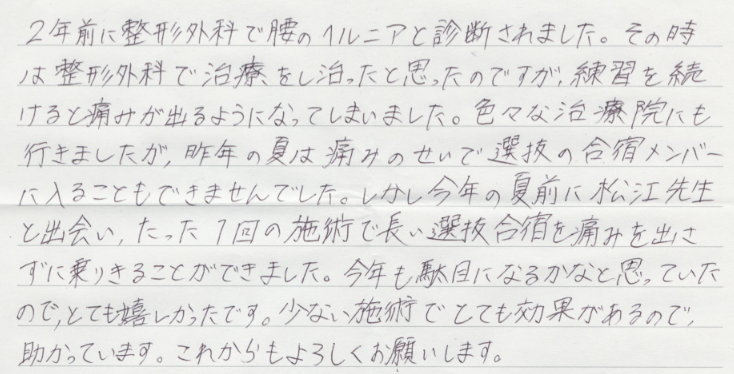 2年前に整形外科で腰のヘルニアと診断されました。その時
は整形外科で治療をし治ったと思ったのですが、練習を続
けると痛みが出るようになってしまいました。色々な治療院にも
行きましたが、昨年の夏は痛みのせいで選抜の合宿メンバー
に入ることもできませんでした。しかし今年の夏前に松江先生
と出会い、たった1回の施術で長い選抜合宿を痛みを出さ
ずに乗りきることができました。今年も駄目になるかなと思っていた
ので、とても嬉しかったです。少ない施術でとても効果があるので、
助かっています。これからもよろしくお願いします。